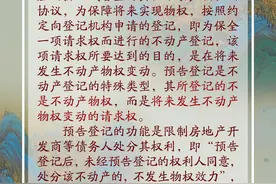 协议，为保障将来实现物权，按照约
定向登记机构申请的登记，即为保全
一项请求权而进行的不动产登记，该
项请求权所要达到的目的，是在将来
发生不动产物权变动。预告登记是不
动产登记的特殊类型，其所登记的不
是不动产物权，而是将来发生不动产
物权变动的请求权。
预告登记的功能是限制房地产开
发商等债务人处分其权利，即“预告
登记后，未经预告登记的权利人同意，
处分该不动产的，不发生物权效力”，